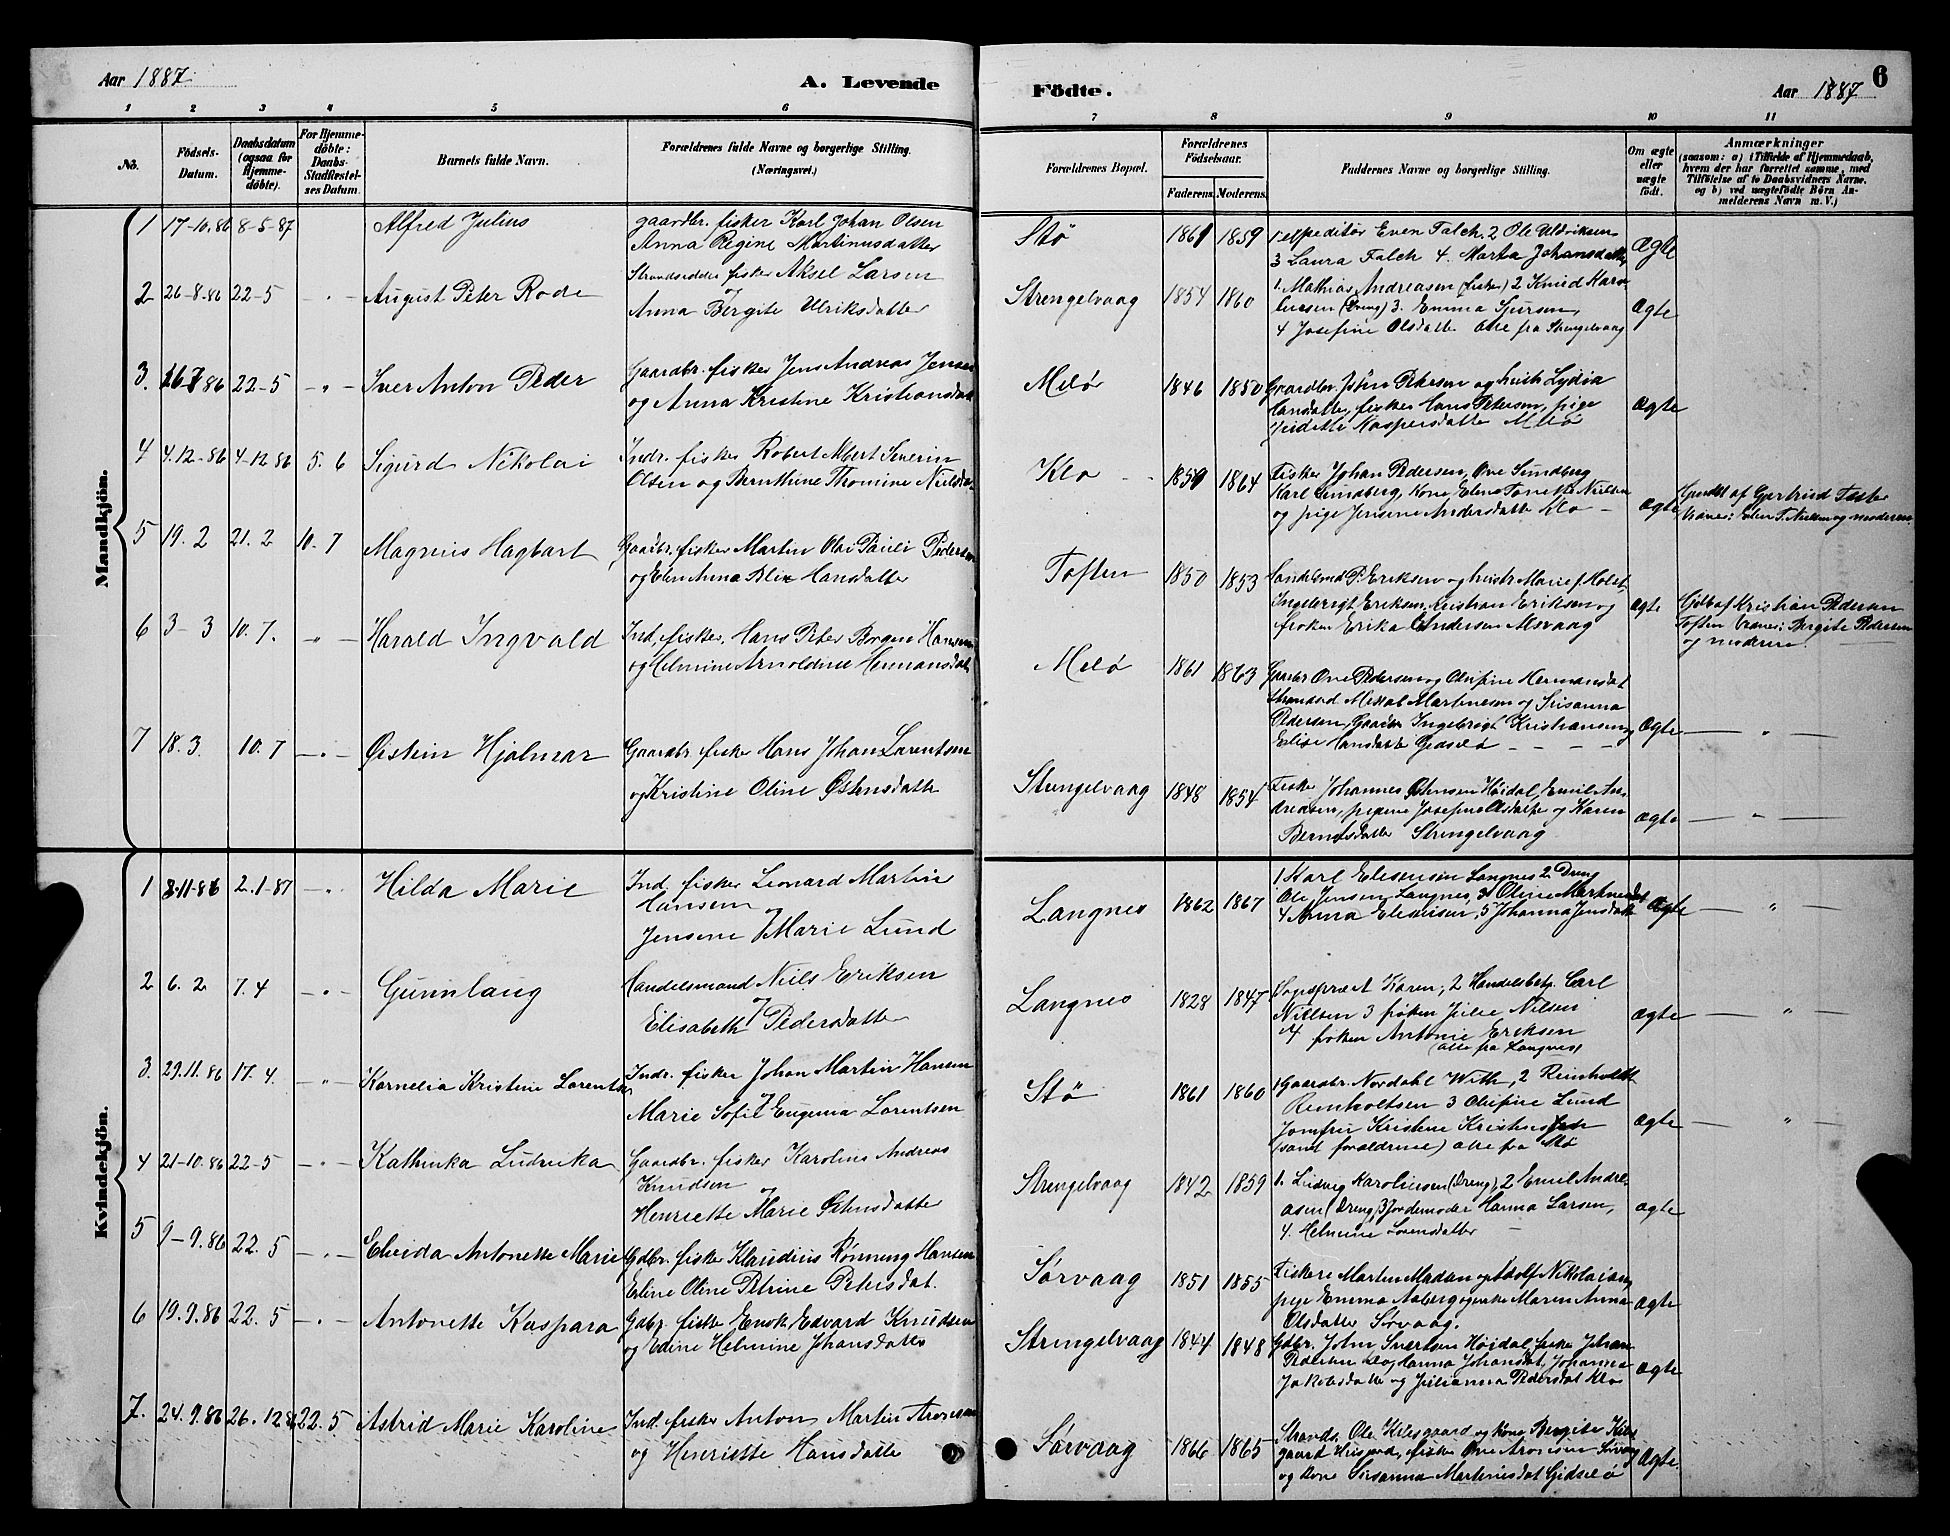 Aar 1887.
A. Levende
1 2 3 4 5 6
No.
Födsels-Datum.
Daabsdatum (ogsaa for Hjemmedöbte).
For Hjemmedöbte: Daabs-Stadfæstelses Datum.
Barnets fulde Navn.
Forældrenes fulde Navne og borgerlige Stilling. (Næringsvei.)
Mandkjön.
1 17-10.86 8-5-87 Alfred Julius gaardbr. fisker Karl Johan Olsen
Anna Regine Martinusdatter
2 26-8.86 22-5 - " - August Peter Rode Strandsidder fisker Aksel Larsen
og
Anna Bergite Ulriksdatter
3. 86 22-5 - " - Iver Anton Peder Gaardbr. fisker Jens Andreas Jensen
og Anna Kristine Kristiansdat
4 4.12-86 4-12 86 5. 6 Sigurd Nikolai Indr. fisker Robert Albert Severin
Olsen og Bernthine Thomine Nielsda
5 19. 2 21. 2 10. 7 Magnus Hagbart Gaardbr. fisker Martin Olai Pauli Pedersen
og Elen Anna Blix Hansdatter
6 3-3 10. 7. " - Harald Ingvald Ind. fisker, Hans Peter Borgen Hansen
og Helmine Arnoldine Hermansdat
7 18. 3. 10. 7 - " - Østein Hjalmar Gaardbr. fisker Hans Johan Lorentsen
og Kristine Oline Østensdatter
Kvindekjön.
1 11-86 2.1-87 - " - Hilda Marie Ind. fisker Leonard Martin
Hansen
og
Jensine Marie Lund
2 6. 2 7. 4 - " - Gunnlaug Handelsmand Niels Eriksen
og
Elisabeth Pedersdatter
3. 29.11.86 17. 4. - " - Kornelia Kristine Lorentse Indr. fisker Johan Martin Hansen
og
Marie Sofie Eugenia Lorentsen
4 21-10.86 22-5 - " - Kathinka Ludvika Gaardbr. fisker Karolius Andreas
Knudsen
og
Henriette Marie Østensdatter
5 9-9.86 22. 5 - " - Elvida Antonette Marie Gdbr. fisker Klaudius Rønning Hansen
Eline Oline Petrine Petersdat.
6 19.9.86 22. 5 - " - Antonette Kaspara Gdbr. fisker Enok Edvard Knudsen
og Edine Helmine Johansdatter
7. 24.9.86 26.12 86 22.5 Astrid Marie Karoline Ind. fisker Anton Martin Aronsen
og Henriette Hansdatter
Födte.
Aar 1887
6
7 8 9 10 11
Forældrenes Bopæl.
Forældrenes Födselsaar.
Faderens. Moderens.
Faddernes Navne og borgerlige Stilling.
Om ægte eller uægte födt.
Anmærkninger
(saasom: a) i Tilfælde af Hjemmedaab, hvem der har forrettet samme, med Tilföielse af to Daabsvidners Navne. og b) ved uægtefödte Börn Anmelderens Navn m. V.)
Stø 1861 1859 1 expeditør Even Falch, 2 Ole Uldriksen
3 Laura Falch 4. Marta Johansdatter Ægte
Strengelvaag 1854 1860 1 Mathias Andreasen (fisker) 2 Knud Karo-
liusen (Dreng) 3. Emma Sjursen,
4 Josefine Olsdatter alle fra Strengelvaag Ægte
Melø 1846 1850 Gaardbr. John Petersen og hustr Lydia
Hansdatter, fisker Hans Petersen, pige
Kaspersdatter Melø Ægte
Klo - - 1859 1864 Fisker Johan Pedersen, Ove Sundberg
Karl Sundberg, Kone, Elena Tonette Nielsen
og pige Jensine Andersdatter Klo - Ægte
af Gertrud Foster
Elen T. Nielsen og moderen.
Toften 1850 1853 Handelsmd P. Eriksen og hustr Marie f. Holst
Ingebrigt Eriksen, Kristian Eriksen og
frøken Erika Andersen Alsvaag Ægte
Hjdb af Kristian Pedersen
Toften Vidner: Bergite Pedersen
og moderen.
Melø 1861 1863 Gaardbr Ove Pedersen og Olufine Hermansdat
Strandsd Martinesen og Susanna
Pedersen, Gaardbr Ingebrigt Kristiansen og
Elise Hansdatter Gidselø - - - Ægte - " -
Strengelvaag 1848 1854 Fisker Johannes Østensen Høidal, Emil An-
dreasen, pigerne Josefine Olsdatter og Karen
Berntsdatter Strengelvaag Ægte - " -
Langnes 1862 1867 1 Karl Eliseusen Langnes 2 Dreng
Ole Jensen Langnes, 3 Oline Martinesdat
4 Anna Eliseusen, 5 Johanna Jensdatter Ægte - " -
Langnes 1828 1847 Sognepræst Karen, 2 Handelsbetj. Carl
Nielsen 3 frøken Julie Nilsen
4 frøken Antonie Eriksen
(alle fra Langnes) Ægte - " -
Stø 1861 1860 1 Gaardbr. Nordahl With, 2 Reinholdt
Reinholtsen 3 Olufine Lund
Jomfru Kristine
(samt forældrene) alle fra Stø Ægte - " -
Strengelvaag 1842 1859 1. Ludvig Karoliusen (Dreng), 2 Emil Andre-
asen (Dreng) 3 Jordemoder Hanna Larsen,
4. Helmine Lorensdatter - Ægte
Sørvaag 1851 1855 Fiskere Martin Madsen og Adolf Nikolaisen,
pige Emma Aaberg og enke Maren Anna
Olsdatter Sørvaag. Ægte
Strengelvaag 1844 1848 Gdbr. John Sivertsen Høidal, fisker Johan
Pedersen Klo, Hanna Johansdat, Johanna
Jakobsdatter og Julianna Pedersdat Klo Ægte
Sørvaag 1866 1865 Strands. Ole Kilsgaard og kone Bergite Kils-
gaard, fisker Ove Aronsen Sørvaag
og kone Susanna Martinusdat Gidselø Ægte.